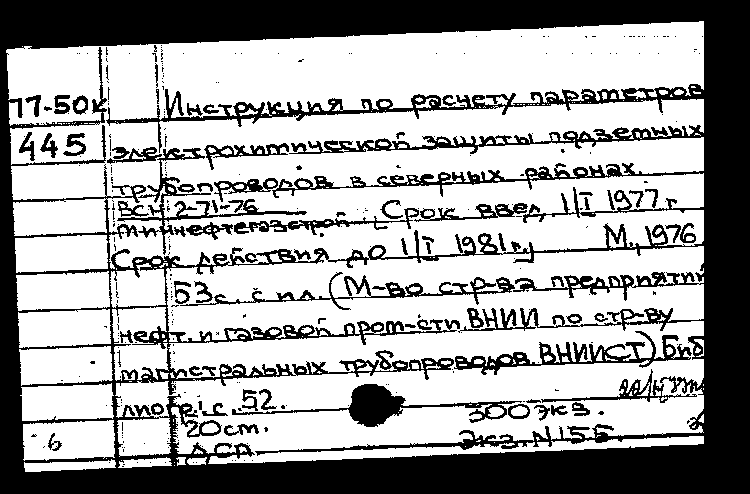 77-50к Инструкция по расчету параметров
445 электрохимической защиты подземных
трубопроводов в северных районах.
ВСН 2-71-76
Миннефтегазстрой. [Срок введ. 1/I 1977 г.
Срок действия до 1/I 1981 г.] М., 1976
53 с. с ил. (М-во стр-ва предприятий
нефт. и газовой пром-сти. ВНИИ по стр-ву
магистральных трубопроводов ВНИИСТ) Биб
лиогр.: с. 52.
20 см. 300 экз.
6 ДСП. Экз. N 155.